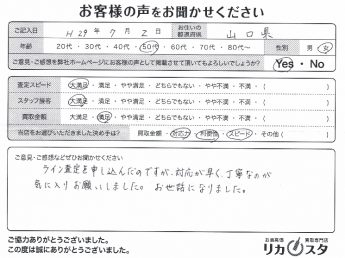 お客様の声をお聞かせください
ご記入日 H29年7月2日 お住いの都道府県 山口県
年齢 20代・30代・40代・50代・60代・70代・80代〜 性別 男・女
ご意見・ご感想を弊社ホームページにお客様の声として掲載させて頂いてもよろしいでしょうか? Yes・No
査定スピード 大満足・満足・やや満足・どちらでもない・やや不満・不満・( )
スタッフ接客 大満足・満足・やや満足・どちらでもない・やや不満・不満・( )
買取金額 大満足・満足・やや満足・どちらでもない・やや不満・不満・( )
当店をお選びいただきました決め手は? 買取金額・対応力・利便性・スピード・その他( )
ご意見・ご感想などぜひお聞かせください
ライン査定を申し込んだのですが、対応が早く、丁寧なのが
気に入りお願いしました。お世話になりました。
ご協力ありがとうございました。
この度は誠にありがとうございました。
お酒高価買取専門店
リカスタ